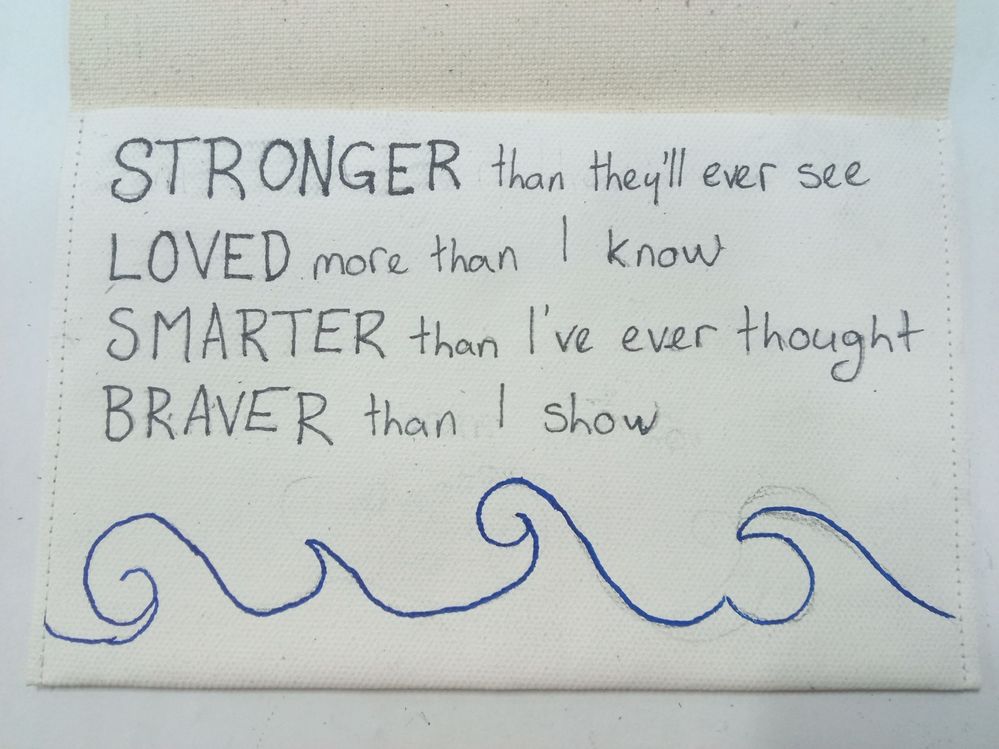 STRONGER than they'll ever see
LOVED more than I know
SMARTER than I've ever thought
BRAVER than I show